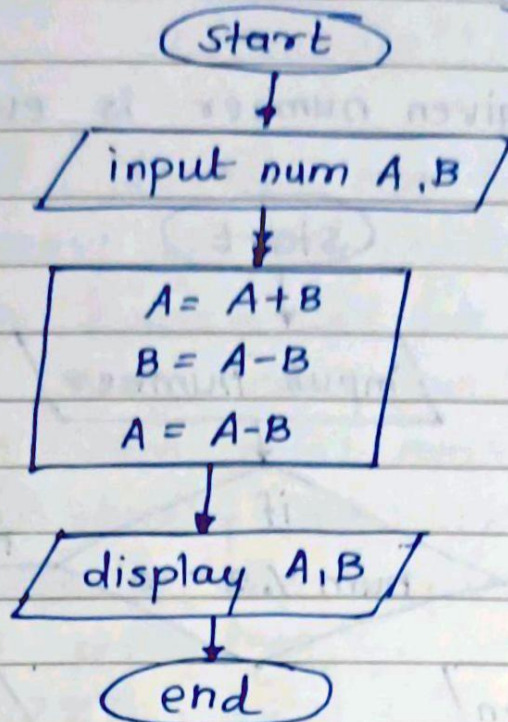 start
input num A,B
A = A+B
B = A-B
A = A-B
display A,B
end